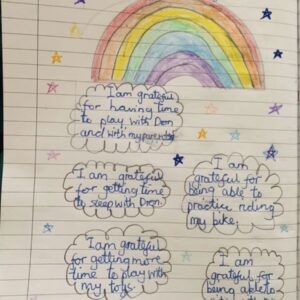 I am grateful
for having time
to play with
and with my
I am grateful
for getting time
to sleep with
I am
grateful for
being able to
practice riding
my bike.
I am grateful
for getting more
time to play with
my toys.
I am
grateful for
being able to